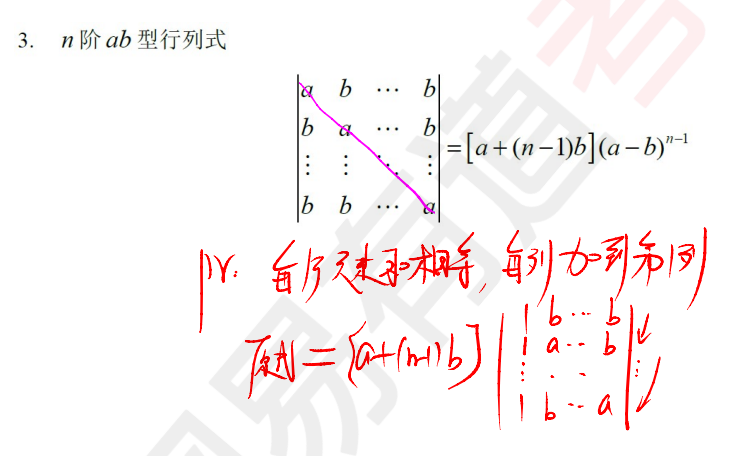 3. n 阶 ab 型行列式
| a b ⋯ b |
| b a ⋯ b |
| ⋮ ⋮ ⋱ ⋮ | = [a+(n−1)b](a−b)^{n−1}
| b b ⋯ a |
每行元素和相等, 每列加到第1列
原式 = [a+(n-1)b] | 1 b ⋯ b |
| 1 a ⋯ b |
| ⋮ ⋅ ⋅ ⋮ |
| 1 b ⋯ a |
网易有道考